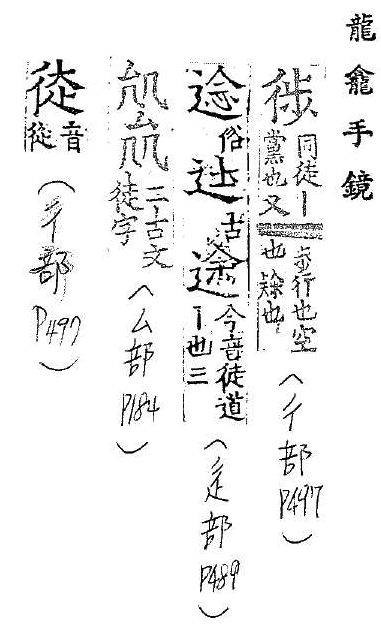 龍龕手鏡
徒 同徒丨
黨也又
步行也空
也隸也
(彳部
P497)
俗 古 途 今音徒道
丨也三
(辵部
P489)
二古文
徒字
(厶部
P184)
音
(彳部
P497)